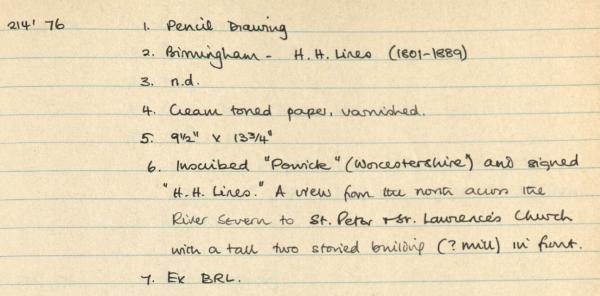 214' 76 1. Pencil Drawing
2. Birmingham - H.H. Lines (1801-1889)
3. n.d.
4. Cream toned paper, varnished.
5. 9½" x 13¾"
6. Inscribed "Powick" (Worcestershire") and signed
"H.H. Lines." A view from the north across the
River Severn to St. Peter & St. Lawrence's Church
with a tall two storied building (? mill) in front.
7. Ex BRL.